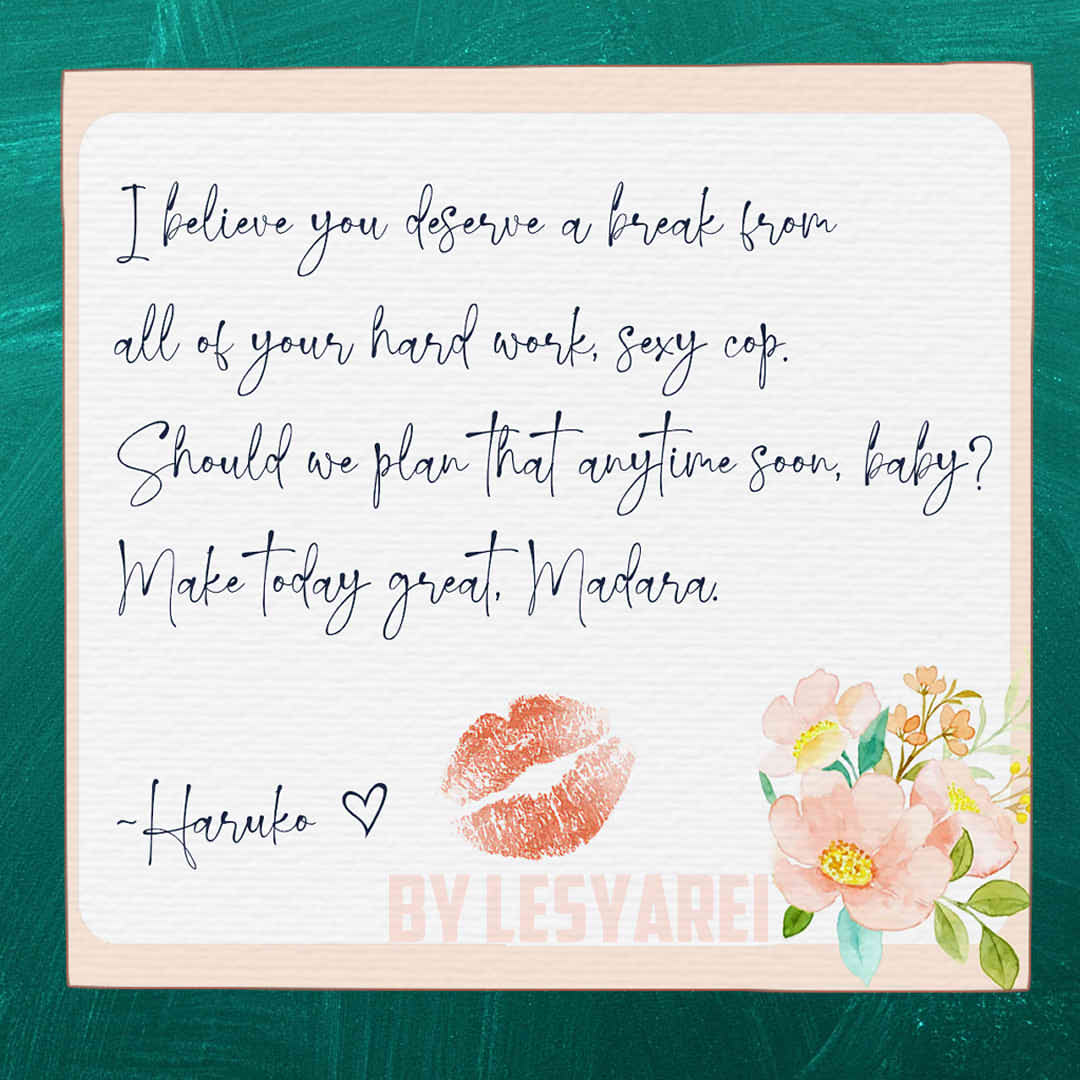 I believe you deserve a break from
all of your hard work, sexy cop.
Should we plan that anytime soon, baby?
Make today great, Madara.
~Haruko ♡
BY LESYAREI